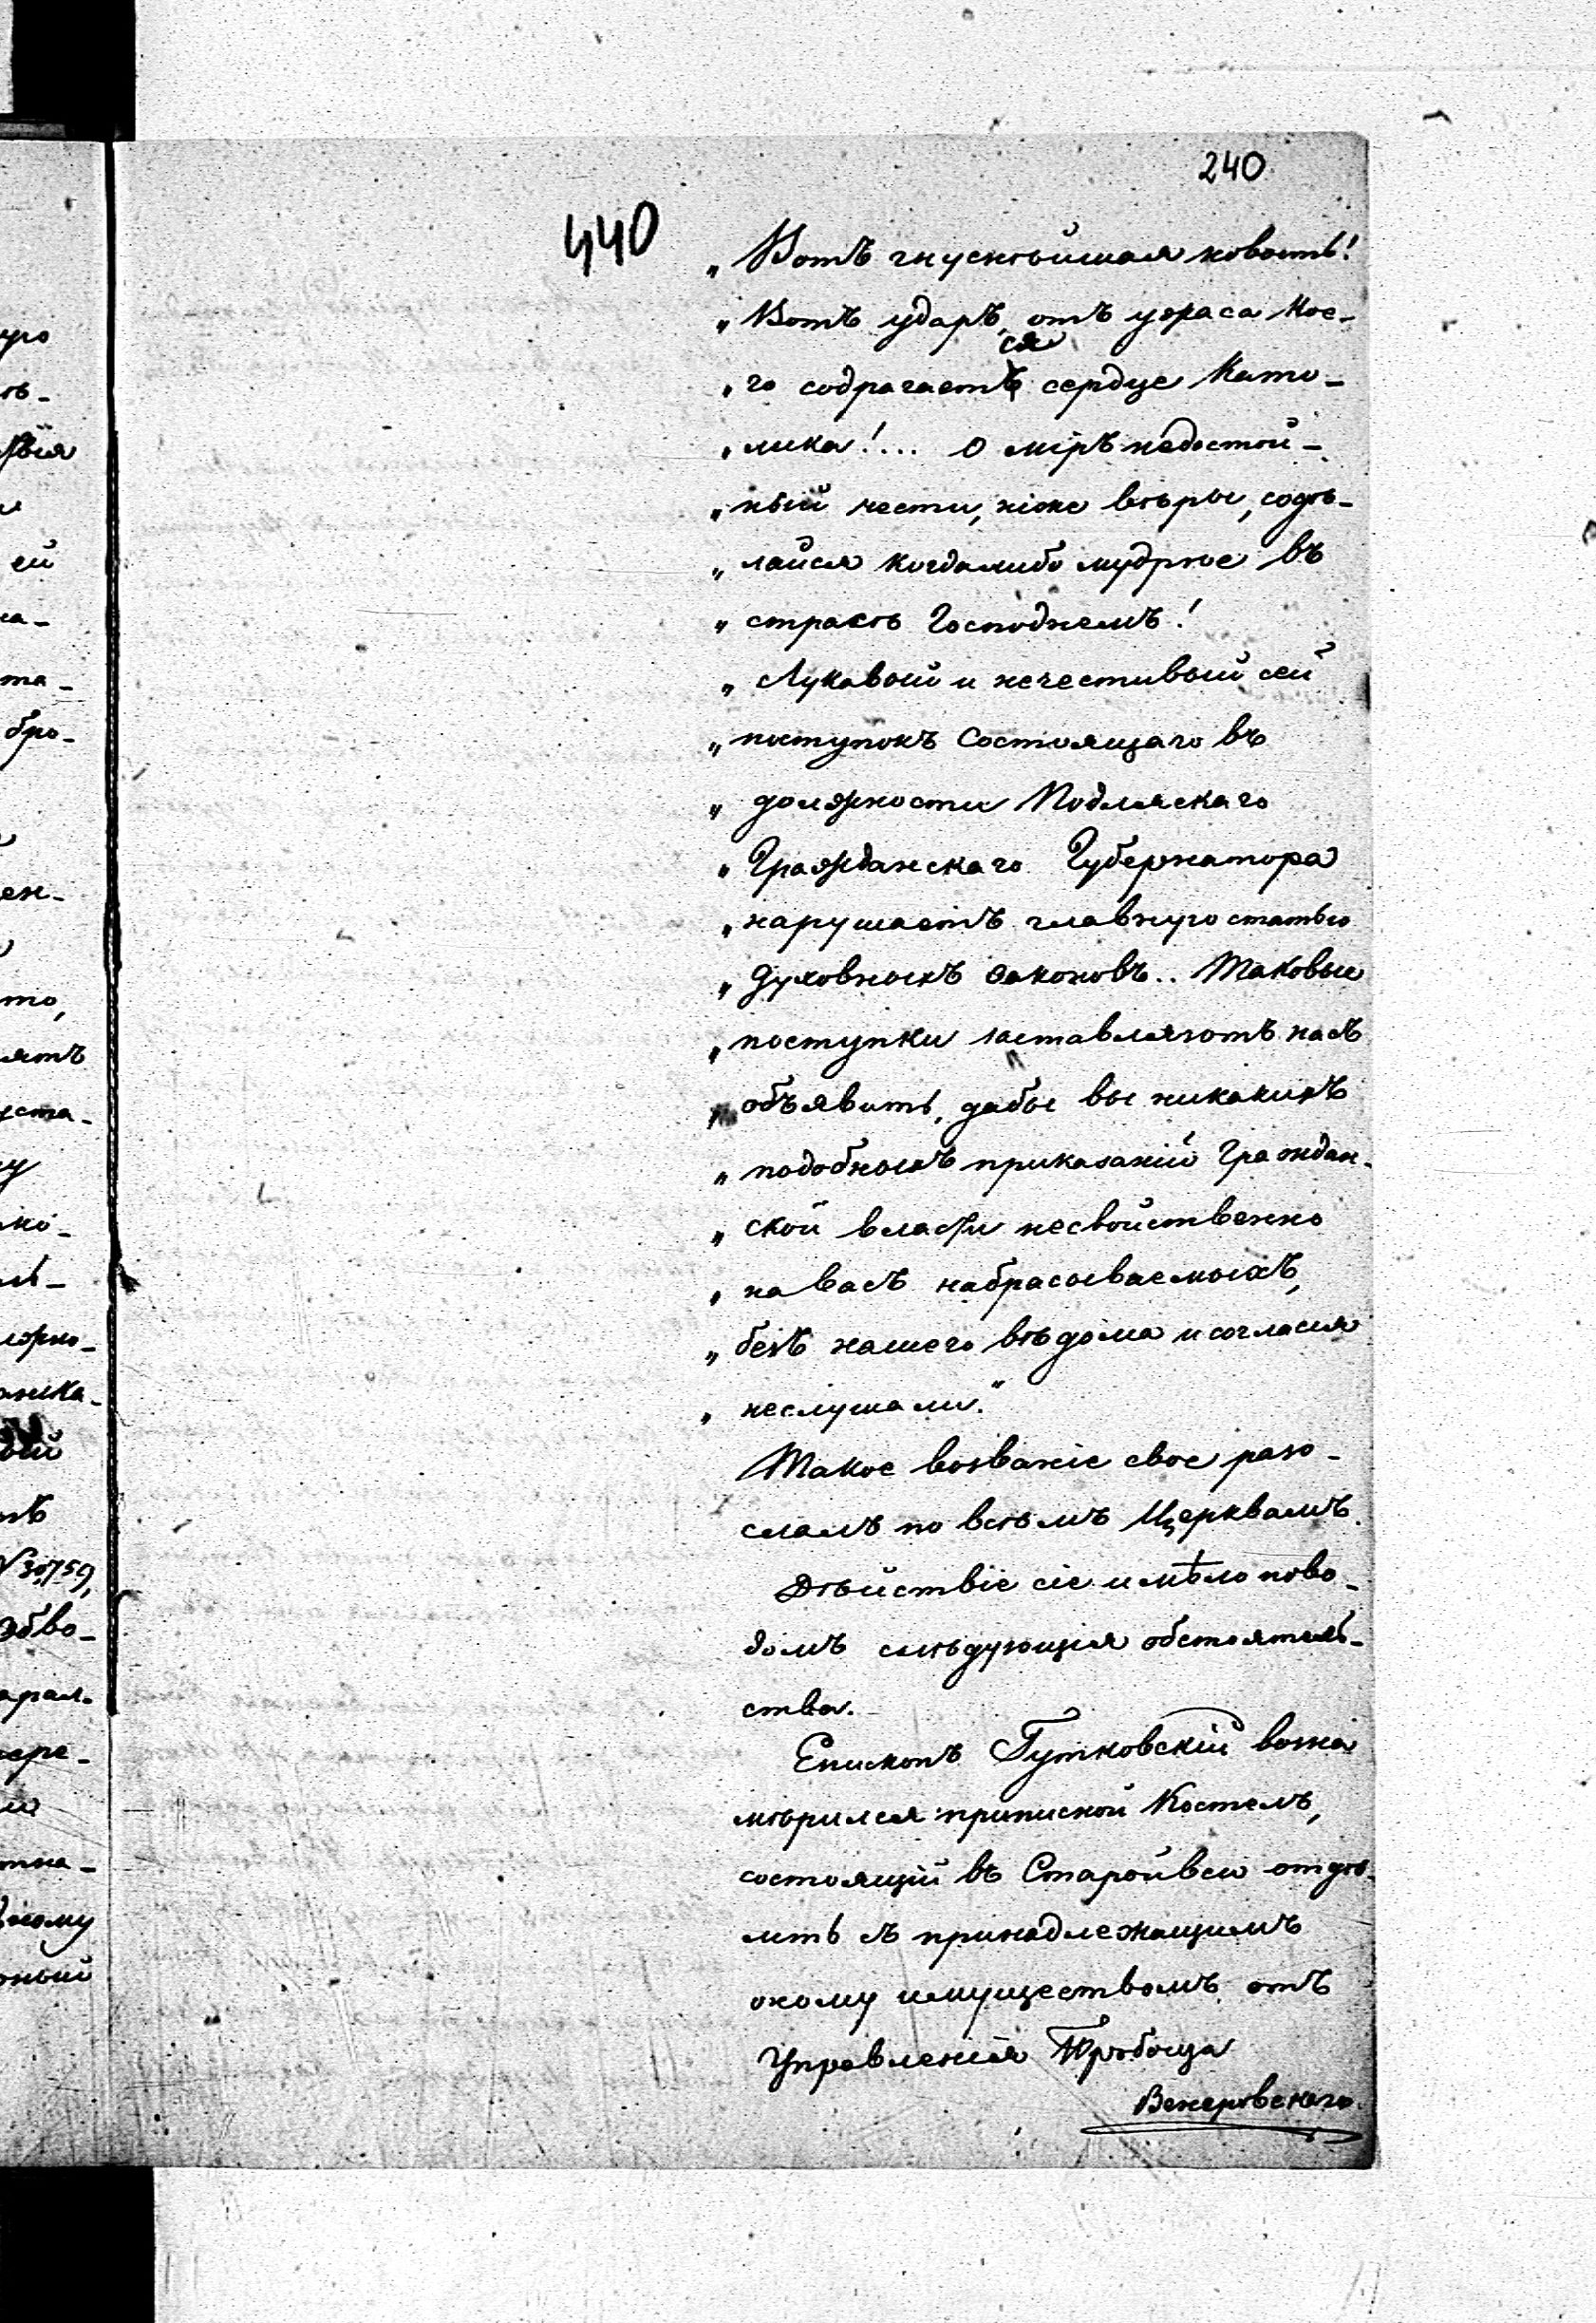 240
440
„ Вотъ гнуснѣйшая новость!
„ Вотъ ударъ, отъ ужаса кое-
„ го содрагаетъ
ся
сердце Като-
„ лика!... О міръ недостой-
„ ный чести, ниже вѣры, содѣ-
„ лайся когдалибо мудрѣе въ
„ страхѣ Господнемъ!
„ Лукавый и нечестивый сей
„ поступокъ Состоящаго въ
„ должности Подляскаго
„ Гражданскаго Губернатора
„ нарушаетъ главную статью
„ Духовныхъ законовъ.. Таковые
„ поступки заставляютъ насъ
„ объявить, дабы вы никакихъ
„ подобныхъ приказаній Граждан-
„ ской власти несвойственно
„ на васъ набрасываемыхъ,
„ безъ нашего вѣдома и согласія
„ неслушали."
Такое возваніе свое разо-
слалъ по всѣмъ Церквамъ.
Дѣйствіе сіе имѣло пово-
домъ слѣдующія обстоятель-
ства.
Епископъ Гутковскій возна
мѣрился приписной Костелъ,
состоящій въ Старойвси отдѣ-
лить съ принадлежащимъ
оному имуществомъ отъ
Управленія Пробоща
Венеровскаго
уго
ѣ-
вія
ей
на-
та-
бро-
ен-
то,
ятъ
уста-
у
ко-
ль-
лужно-
аника-
вый
тъ
№ 30759,
обво-
арал-
пере-
ли
тна-
дному
рный